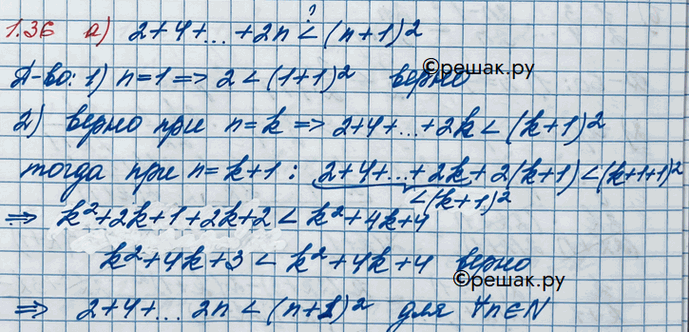 1.36 а) 2+4+...+2n <^? (n+1)^2
Д-во: 1) n=1 => 2 < (1+1)^2 верно
©решак.ру
2) верно при n=k => 2+4+...+2k < (k+1)^2
тогда при n=k+1: 2+4+...+2k+2(k+1) < (k+1+1)^2
<(k+1)^2
=> k^2+2k+1+2k+2 < k^2+4k+4
k^2+4k+3 < k^2+4k+4 верно
©решак.ру
=> 2+4+...2n < (n+1)^2 для ∀n∈N